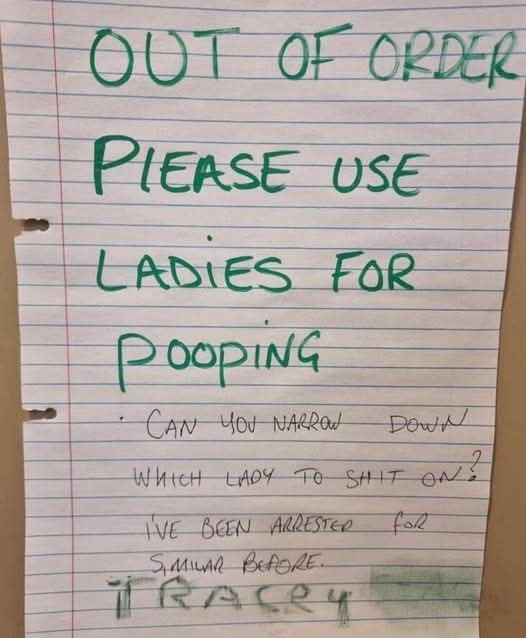 OUT OF ORDER
PLEASE USE
LADiES FOR
POOPiNG
· CAN YOU NARROW DOWN
WHICH LADY TO SHIT ON?
I'VE BEEN ARRESTED FOR
SIMILAR BEFORE.
TRACEY